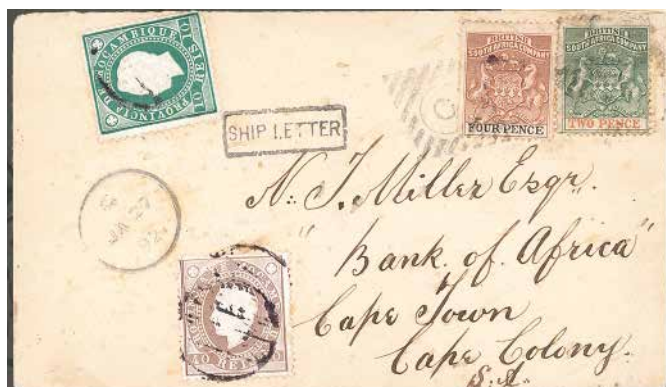 PROVINCIA DE MOÇAMBIQUE
10 REIS 10
BRITISH
SOUTH AFRICA COMPANY
FOUR PENCE
BRITISH
SOUTH AFRICA COMPANY
TWO PENCE
SHIP LETTER
C
JA 27
92
N. J. Miller Esqr.
"Bank of Africa"
Cape Town
Cape Colony.
S.A.
40 REIS